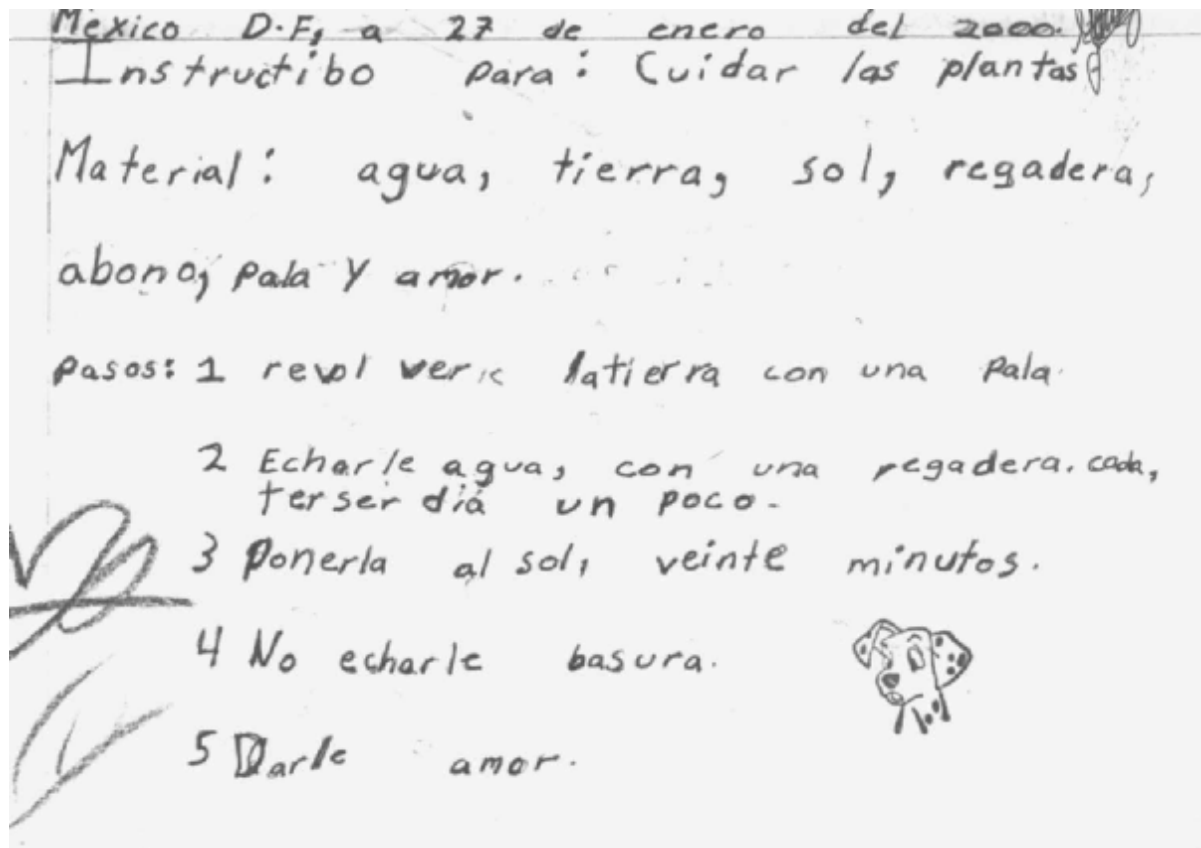 México D.F, a 27 de enero del 2000.
Instructibo para: Cuidar las plantas
Material: agua, tierra, sol, regadera,
abono, pala y amor.
pasos: 1 revol ver latierra con una pala.
2 Echarle agua, con una regadera. cada,
terser diá un poco.
3 Ponerla al sol, veinte minutos.
4 No echarle basura.
5 Darle amor.